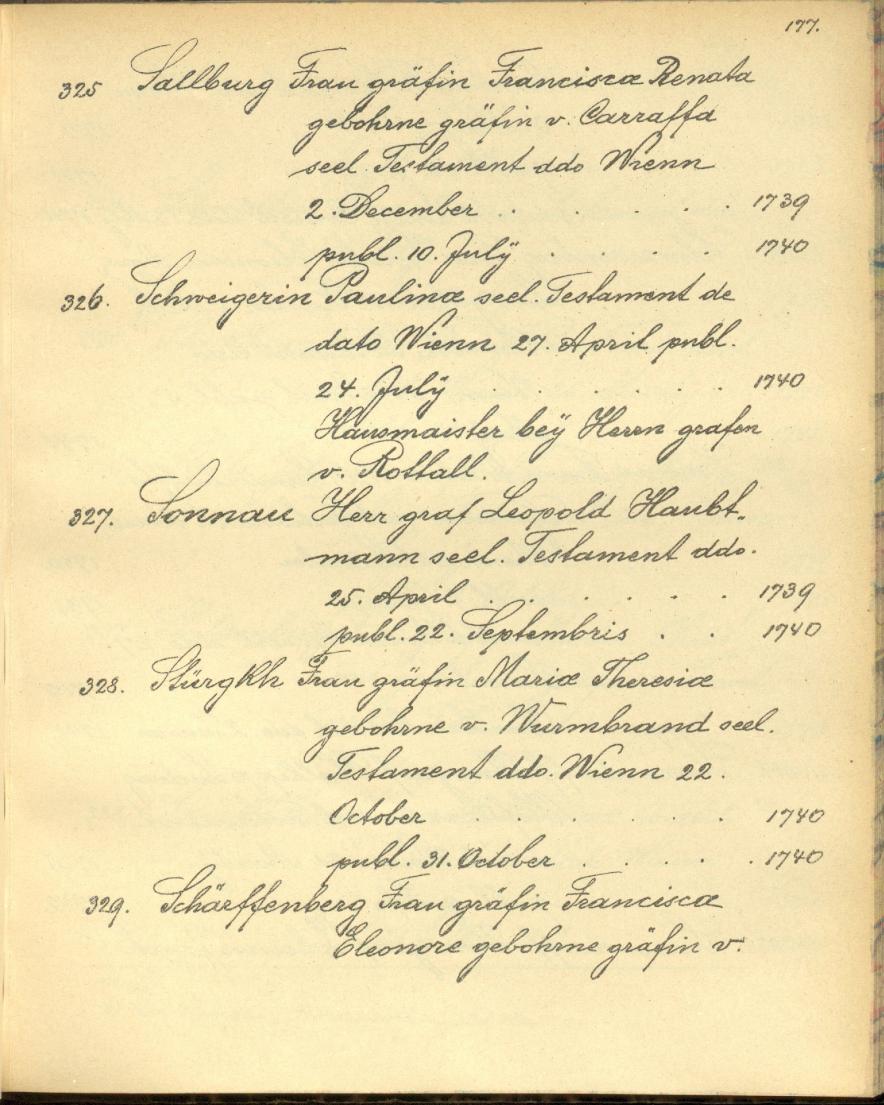 177.
325 Sallburg Frau gräfin Francisca Renata
gebohrne gräfin v. Carraffa
seel. Testament ddo Wienn
2. December . . . . . 1739
publ. 10. Julÿ . . . . 1740
326. Schweigerin Paulina seel. Testament de
dato Wienn 27. April publ.
24. Julÿ . . . . . . 1740
Hausmaister beÿ Herrn grafen
v. Rottall.
327. Sonnau Herr graf Leopold Haubt„
mann seel. Testament ddo.
25. April . . . . . . 1739
publ. 22. Septembris . . 1740
328. Stürgkh Frau gräfin Maria Theresia
gebohrne v. Wurmbrand seel.
Testament ddo. Wienn 22.
October . . . . . . 1740
publ. 31. October . . . . . 1740
329. Schärffenberg Frau gräfin Francisca
Eleonore gebohrne gräfin v.